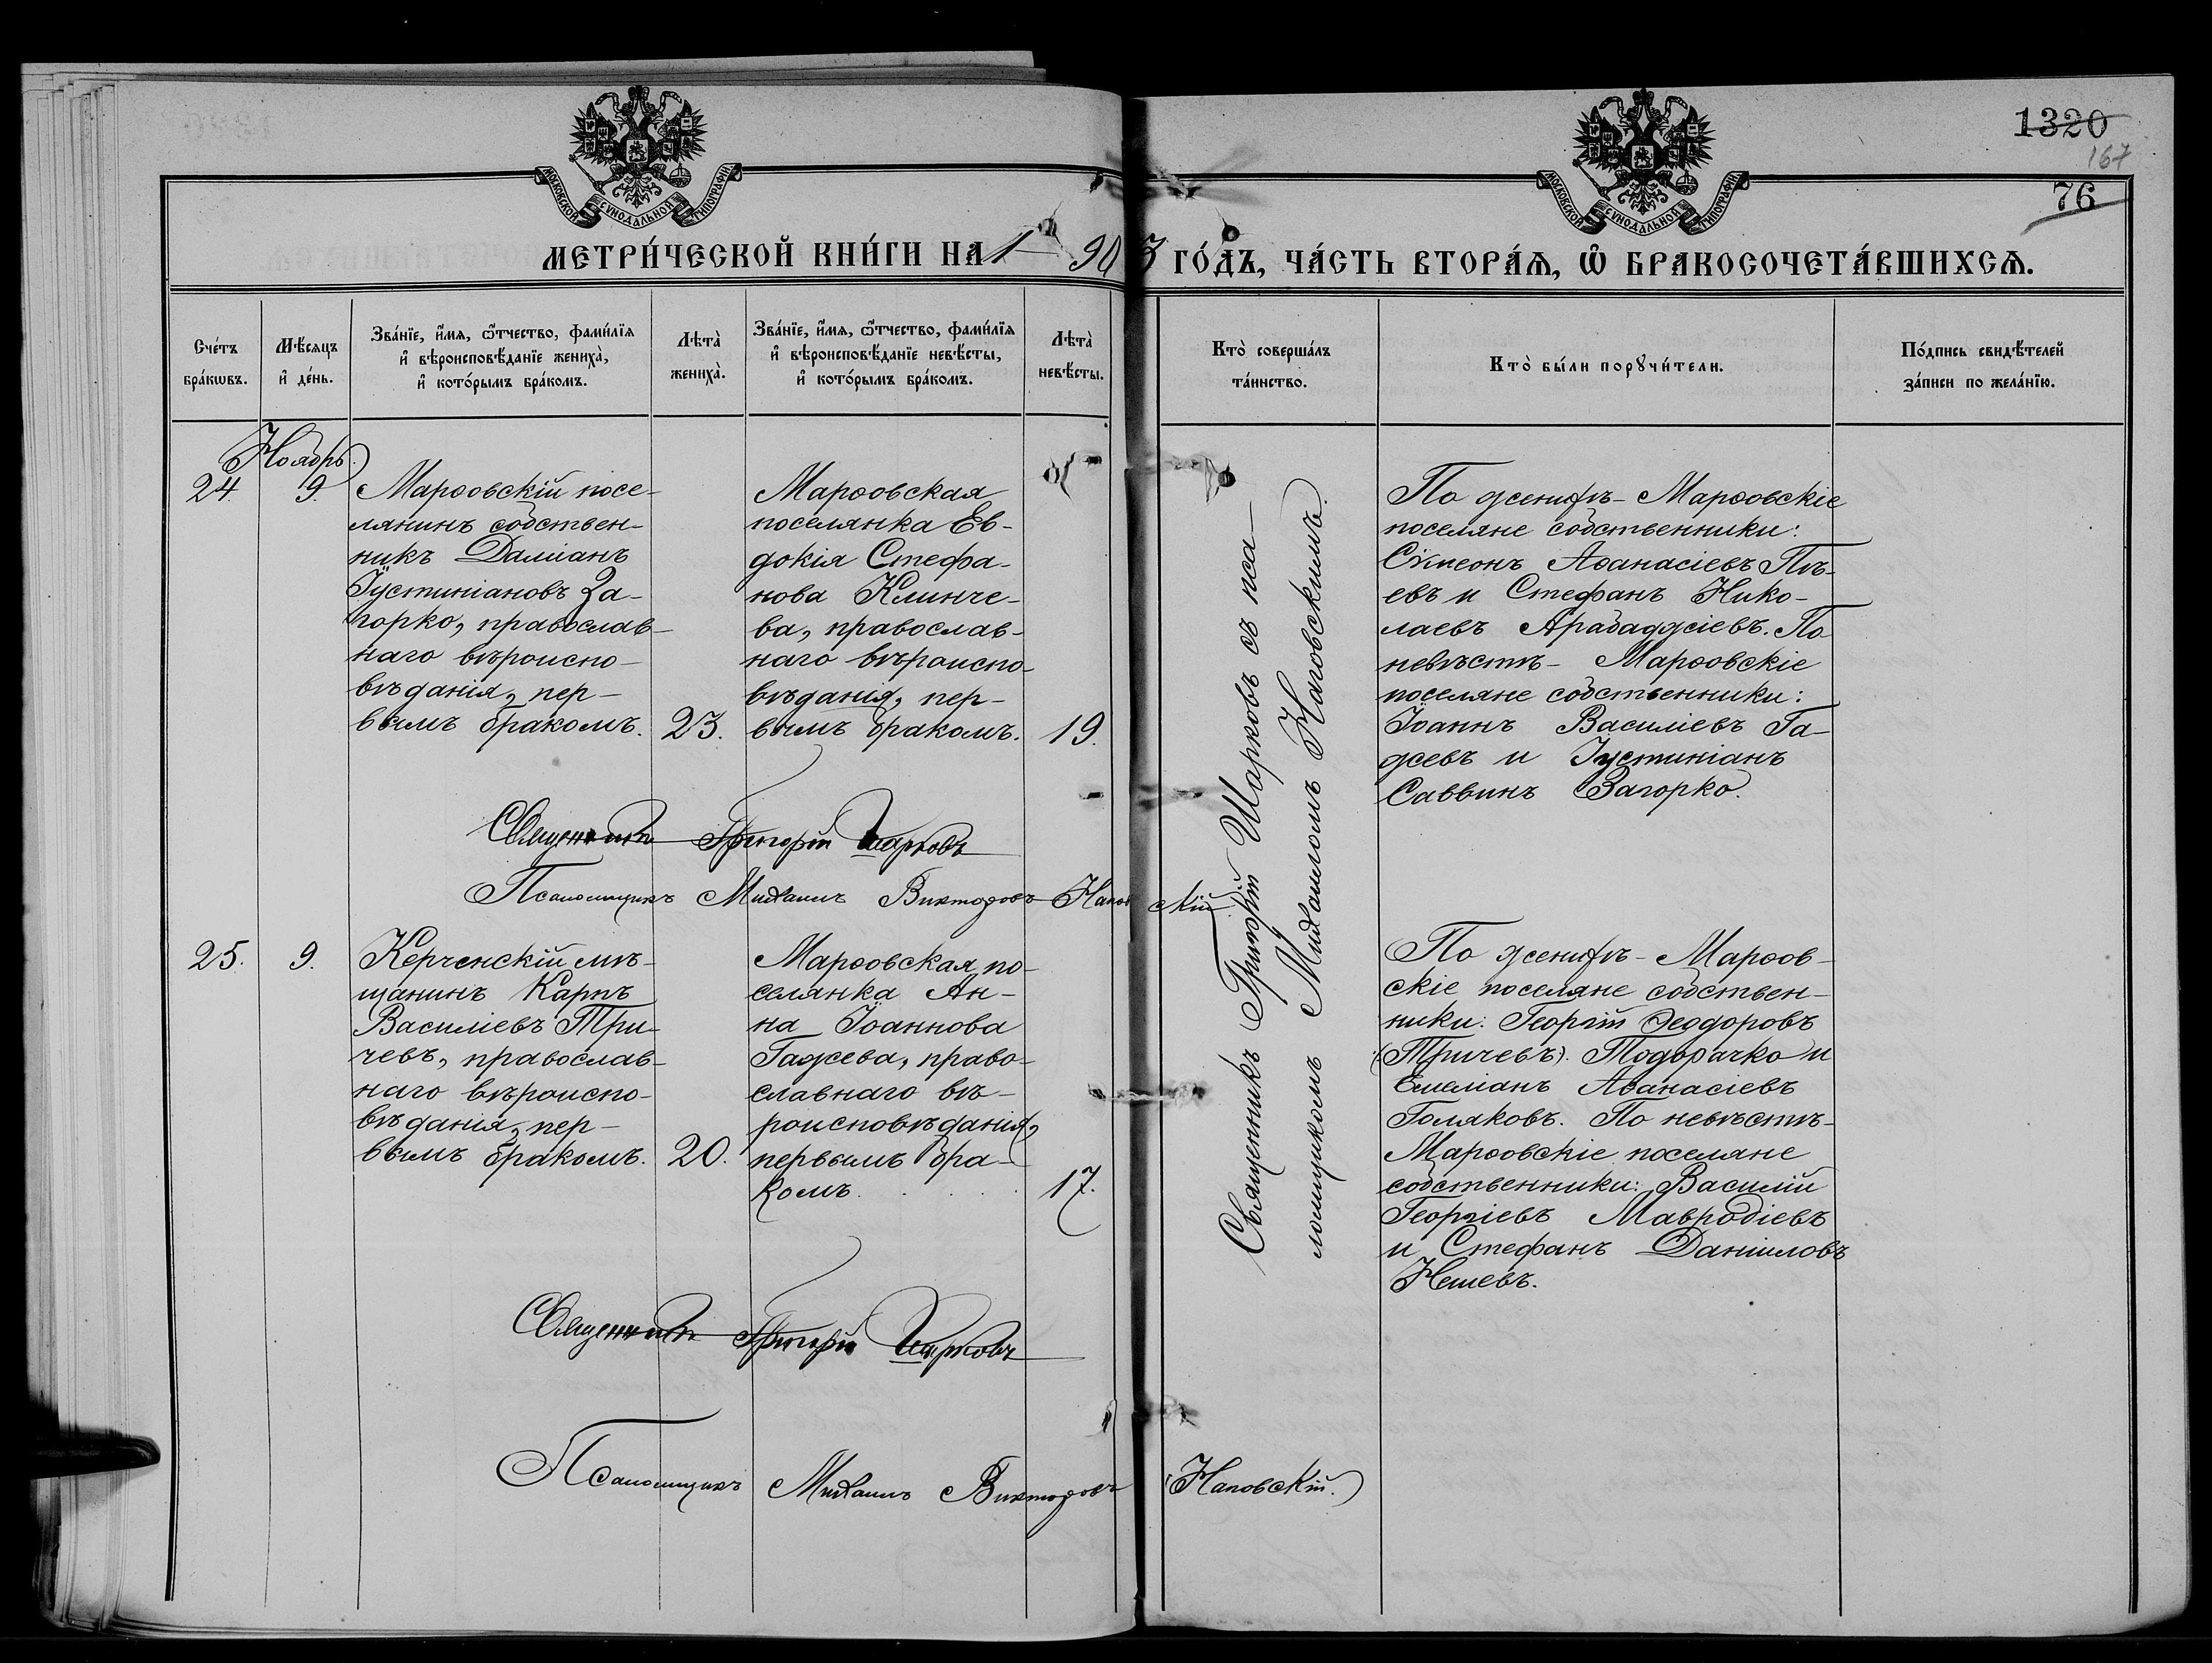 1320
167
76
МОСКОВСКОЙ СѴНОДАЛЬНОЙ ТИПОГРАФІИ
МОСКОВСКОЙ СѴНОДАЛЬНОЙ ТИПОГРАФІИ
МЕТРИ́ЧЕСКОЙ КНИ́ГИ НА 1903 ГО́ДЪ, ЧА́СТЬ ВТОРА́Ѧ, Ѽ БРАКОСОЧЕТА́ВШИХСѦ.
Сче́тъ бра́кωвъ.
Мѣ́сяцъ и҆ де́нь.
Зва́нїе, и҆́мя, ѻ҆́тчество, фами́лїя
и҆ вѣроисповѣ́данїе жениха̀,
и҆ кото́рымъ бра́комъ.
Лѣта̀ жениха̀.
Зва́нїе, и҆́мя, ѻ҆́тчество, фами́лїя
и҆ вѣроисповѣ́данїе невѣ́сты,
и҆ кото́рымъ бра́комъ.
Лѣта̀ невѣ́сты.
Кто̀ соверша́лъ та́инство.
Кто̀ бы́ли порꙋчи́тели.
По́дпись свидѣ́телей за́писи по жела́нїю.
Ноябрь.
24. 9.
Марѳовскій посе-
лянинъ собствен-
никъ Даміанъ
Іустиніановъ За-
горко, православ-
наго вѣроиспо-
вѣданія, пер-
вымъ бракомъ. 23.
Марѳовская
поселянка Ев-
докія Стефа-
нова Клинче-
ва, православ-
наго вѣроиспо-
вѣданія, пер-
вымъ бракомъ. 19.
Священникъ Григорій Шарковъ съ пса-
ломщикомъ Михаиломъ Наговскимъ.
По женихѣ - Марѳовскіе
поселяне собственники:
Сѵмеонъ Аѳанасіевъ Пѣ-
евъ и Стефанъ Нико-
лаевъ Арабаджіевъ. По
невѣстѣ - Марѳовскіе
поселяне собственники:
Іоаннъ Василіевъ Га-
жевъ и Іустиніанъ
Саввинъ Загорко.
Священникъ Григорій Шарковъ
Псаломщикъ Михаилъ Викторовъ Наповскій
25. 9.
Керченскій мѣ-
щанинъ Карпъ
Василіевъ Три-
чевъ, православ-
наго вѣроиспо-
вѣданія, пер-
вымъ бракомъ. 20.
Марѳовская по-
селянка Ан-
на Іоаннова
Гажева, право-
славнаго вѣ-
роисповѣданія,
первымъ бра-
комъ. 17.
По женихѣ - Марѳов-
скіе поселяне собствен-
ники: Георгій Ѳеодоровъ
(Тричевъ). Тодорачко и
Емеліанъ Аѳанасіевъ
Голяковъ. По невѣстѣ -
Марѳовскіе поселяне
собственники: Василій
Георгіевъ Мавродіевъ
и Стефанъ Даніиловъ
Нешевъ.
Священникъ Григорій Шарковъ
Псаломщикъ Михаилъ Викторовъ Наповскій.